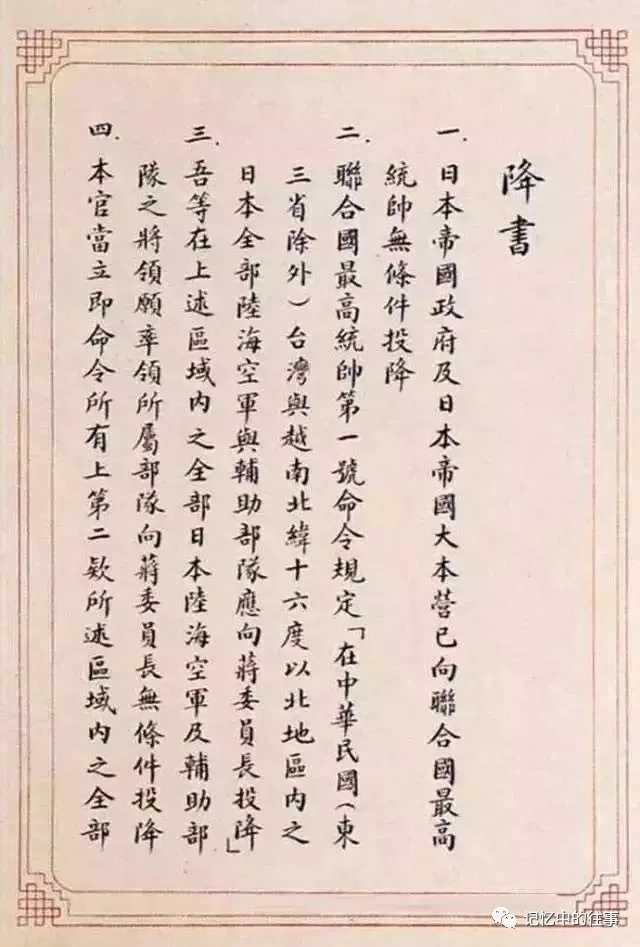 降書
一. 日本帝國政府及日本帝國大本營已向聯合國最高
統帥無條件投降
二. 聯合國最高統帥第一號命令規定「在中華民國(東
三省除外)台灣與越南北緯十六度以北地區內之
日本全部陸海空軍與輔助部隊應向蔣委員長投降」
三. 吾等在上述區域內之全部日本陸海空軍及輔助部
隊之將領願率領所屬部隊向蔣委員長無條件投降
四. 本官當立即命令所有上第二款所述區域內之全部
记忆中的往事